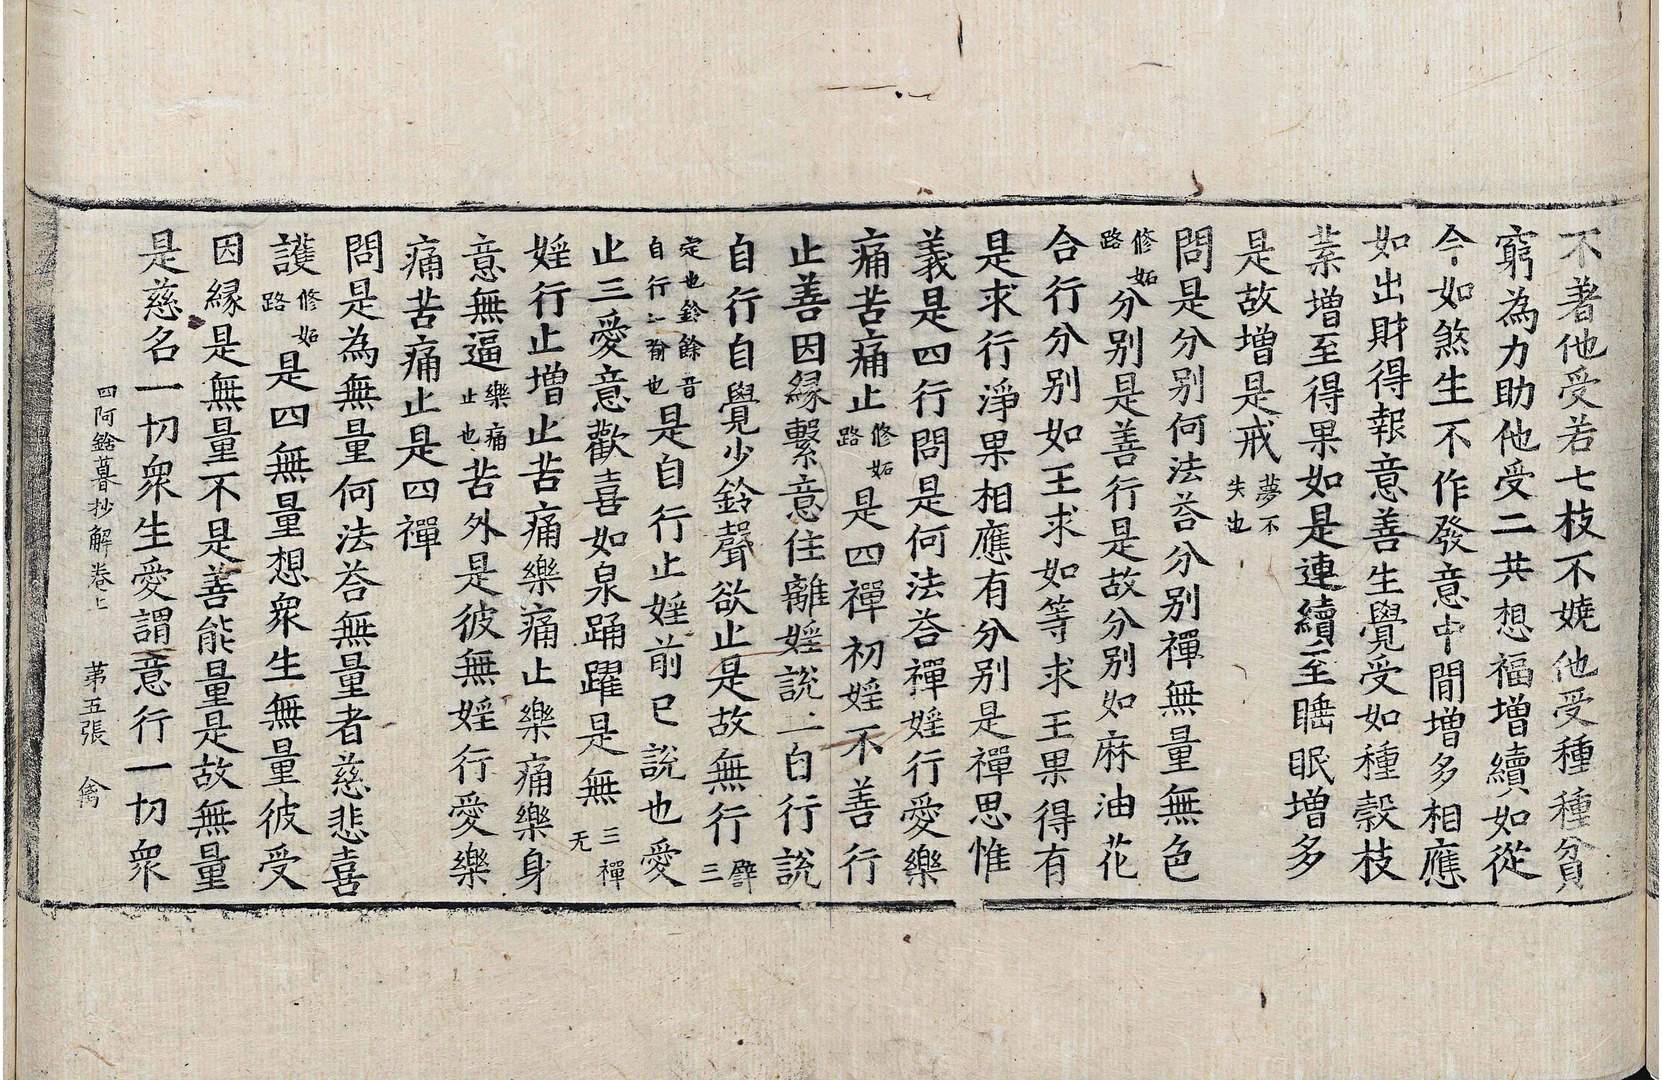 不著他受若七枝不嬈他受種種貧
窮為力助他受二共想福增續如從
今如煞生不作發意中間增多相應
如出財得報意善生覺受如種穀枝
葉增至得果如是連續至睡眠增多
是故增是戒夢不失也
問是分別何法荅分別禪無量無色
修妬路分別是善行是故分別如麻油花
合行分別如王求如等求王果得有
是求行淨果相應有分別是禪思惟
義是四行問是何法荅禪婬行愛樂
痛苦痛止修妬路是四禪初婬不善行
止善因緣繫意住離婬說二自行說
自行自覺少鈴聲欲止是故無行三
定也鈴餘音自行二 也是自行止婬前已說也愛
止三愛意歡喜如泉踊躍是無三禪无
婬行止增止苦痛樂痛止樂痛樂身
意無逼樂痛止也苦外是彼無婬行愛樂
痛苦痛止是四禪
問是為無量何法荅無量者慈悲喜
護修妬路是四無量想衆生無量彼受
因緣是無量不是善能量是故無量
是慈名一切衆生愛謂意行一切衆
四阿鋡暮抄解卷上 第五張 禽